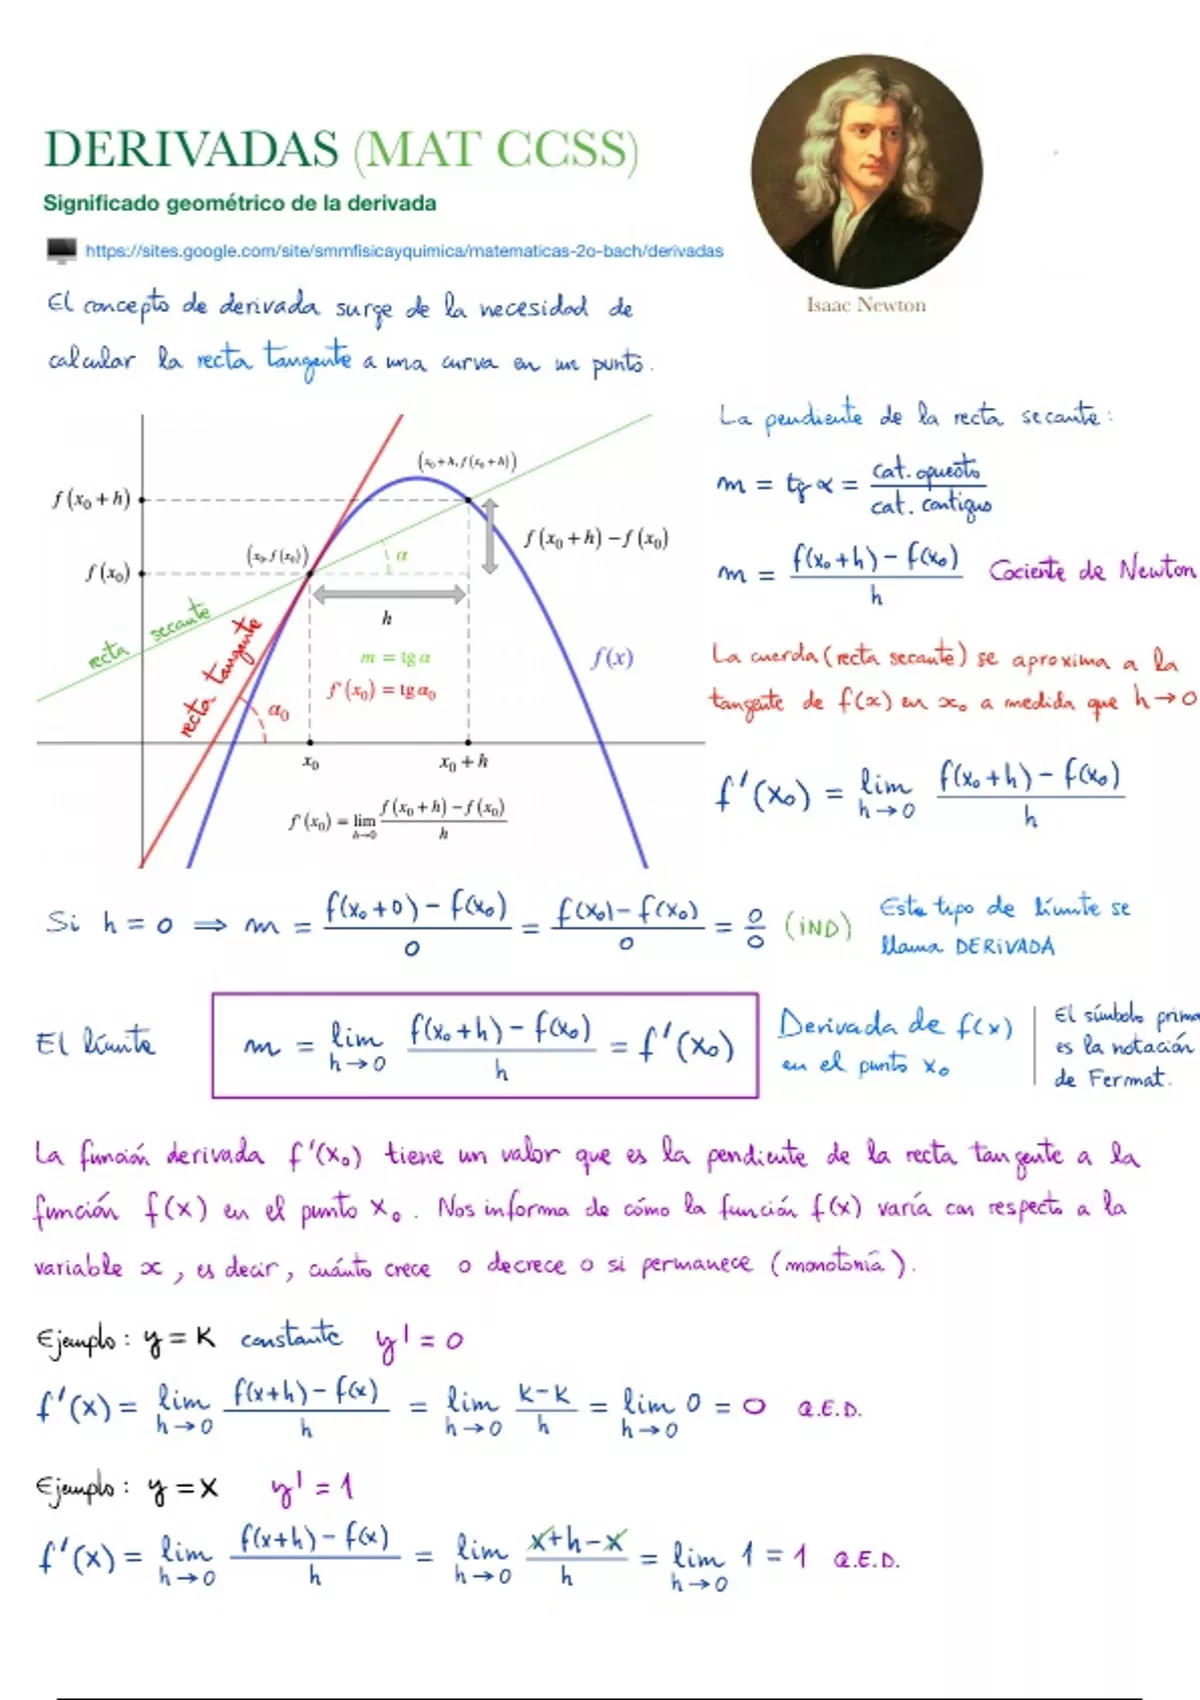 DERIVADAS (MAT CCSS)
Significado geométrico de la derivada
https://sites.google.com/site/smmfisicayquimica/matematicas-2o-bach/derivadas
Isaac Newton
El concepto de derivada surge de la necesidad de
calcular la recta tangente a una curva en un punto.
(x₀+h, f(x₀+h))
f(x₀+h)
f(x₀+h)−f(x₀)
(x₀, f(x₀))
f(x₀)
α
h
recta secante
recta tangente
m = tg α
f'(x₀) = tg α₀
f(x)
α₀
x₀
x₀+h
f'(x₀) = lim h→0 (f(x₀+h)−f(x₀))/h
La pendiente de la recta secante:
m = tg α = cat. opuesto / cat. contiguo
m = (f(x₀+h) − f(x₀))/h Cociente de Newton
La cuerda (recta secante) se aproxima a la
tangente de f(x) en x₀ a medida que h→0
f'(x₀) = lim h→0 (f(x₀+h) − f(x₀))/h
Si h = 0 ⇒ m = (f(x₀+0) − f(x₀))/0 = (f(x₀) − f(x₀))/0 = 0/0 (IND)
Este tipo de límite se
llama DERIVADA
El límite m = lim h→0 (f(x₀+h) − f(x₀))/h = f'(x₀)
Derivada de f(x)
en el punto x₀
El símbolo prima
es la notación
de Fermat.
La función derivada f'(x₀) tiene un valor que es la pendiente de la recta tangente a la
función f(x) en el punto x₀. Nos informa de cómo la función f(x) varía con respecto a la
variable x, es decir, cuánto crece o decrece o si permanece (monotonía).
Ejemplo: y = K constante y' = 0
f'(x) = lim h→0 (f(x+h) − f(x))/h = lim h→0 (K−K)/h = lim h→0 0 = 0 Q.E.D.
Ejemplo: y = x y' = 1
f'(x) = lim h→0 (f(x+h) − f(x))/h = lim h→0 (x+h−x)/h = lim h→0 1 = 1 Q.E.D.